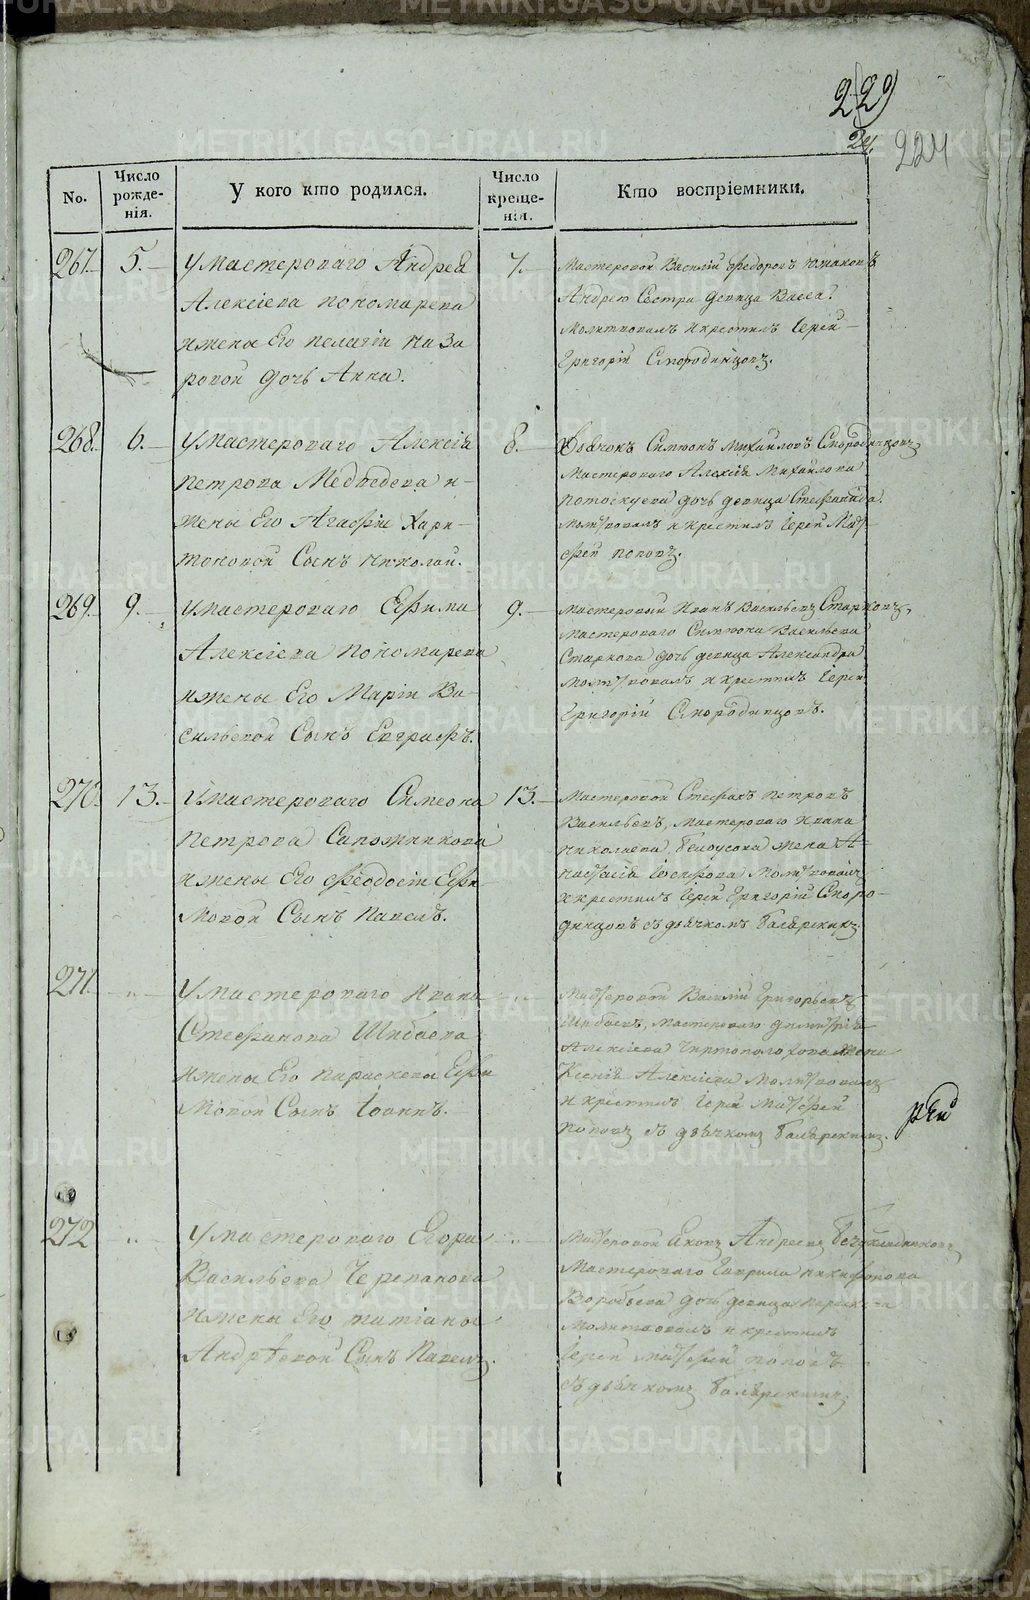 229
24.
224
No.
Число рожденія.
У кого кто родился.
Число крещенія.
Кто воспріемники.
267. 5.
У мастероваго Андрея
Алексіева Пономарева
и жены Его Пелагіи Наза
ровой дочь Анна.
7.
Мастеровой Василій Феодоровъ
Андрею Сестра девица Васса.
Молитвовалъ и крестилъ Іерей
Григорій Смородинцовъ.
268. 6.
У мастероваго Алексія
Петрова Медведева и
жены Его Агафіи Хари-
тоновой Сынъ Николай.
8.
Дьячокъ Симеонъ Михайловъ Смородинцовъ,
Мастероваго Алексія Михайлова
Потоскуева дочь девица Стефанида.
Молитвовалъ и крестилъ Іерей Мат-
фей Поповъ.
269. 9.
У мастероваго Ефима
Алексіева Пономарева
и жены Его Маріи Ва-
сильевой Сынъ Евграфъ.
9.
Мастеровый Иванъ Васильевъ Старковъ,
Мастероваго Симеона Васильева
Старкова дочь девица Александра
Молитвовалъ и крестилъ Іерей
Григорій Смородинцовъ.
270. 13.
У мастероваго Симеона
Петрова Сапожникова
и жены Его Феодосіи Ефи-
мовой Сынъ Павелъ.
13.
Мастеровой Стефанъ Петровъ
Васильевъ, Мастероваго Ивана
Николаева Белоусова жена А-
настасія Іосифова Молитвовалъ
и крестилъ Іерей Григорій Сморо-
динцовъ съ дьячкомъ
271. „
У мастероваго Ивана
Стефанова Шибаева
и жены Его Параскевы Ефи
мовой Сынъ Іоаннъ.
„
Мастеровой Василій Григорьевъ
Шибаевъ, Мастероваго Димитрія
Алексіева жена
Ксенія Алексіева Молитвовалъ
и крестилъ Іерей Матфей
Поповъ съ дьячкомъ
272 „
У мастероваго Егора
Васильева Черепанова
и жены Его Татіаны
Андреевой Сынъ Павелъ.
„
Мастеровой Яковъ Андреевъ
Мастероваго Гаврила Никифорова
Воробьева дочь девица Параскева
Молитвовалъ и крестилъ
Іерей Матфей Поповъ
съ дьячкомъ
METRIKI.GASO-URAL.RU